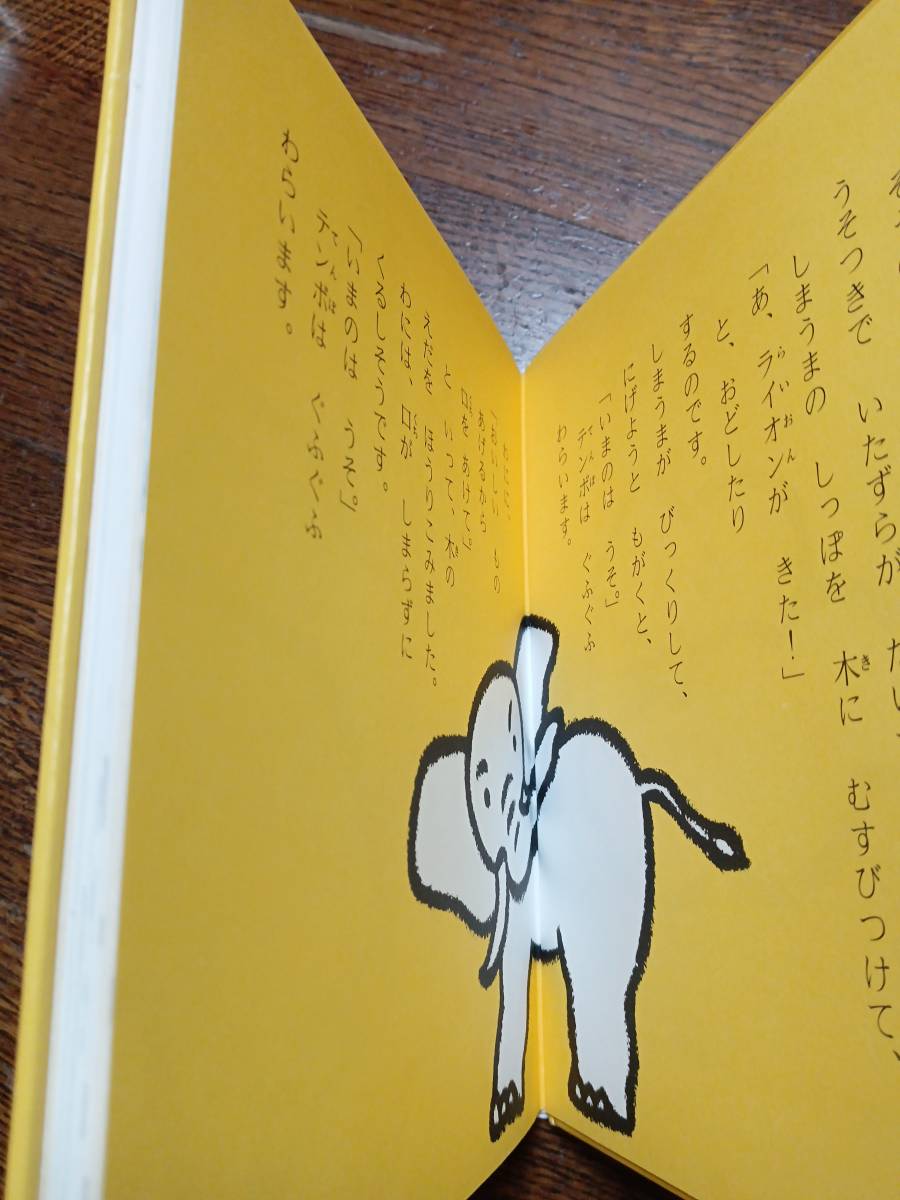 うそつきで いたずらが
しまうまの しっぽを 木に むすびつけて、
「あ、ライオンが きた!」
と、おどしたり
するのです。
しまうまが びっくりして、
にげようと もがくと、
「いまのは うそ。」
テンボは ぐふぐふ
わらいます。
「おいしい もの
あげるから
口を あけて」
と いって、木の
えだを ほうりこみました。
わには、口が しまらずに
くるしそうです。
「いまのは うそ。」
テンボは ぐふぐふ
わらいます。